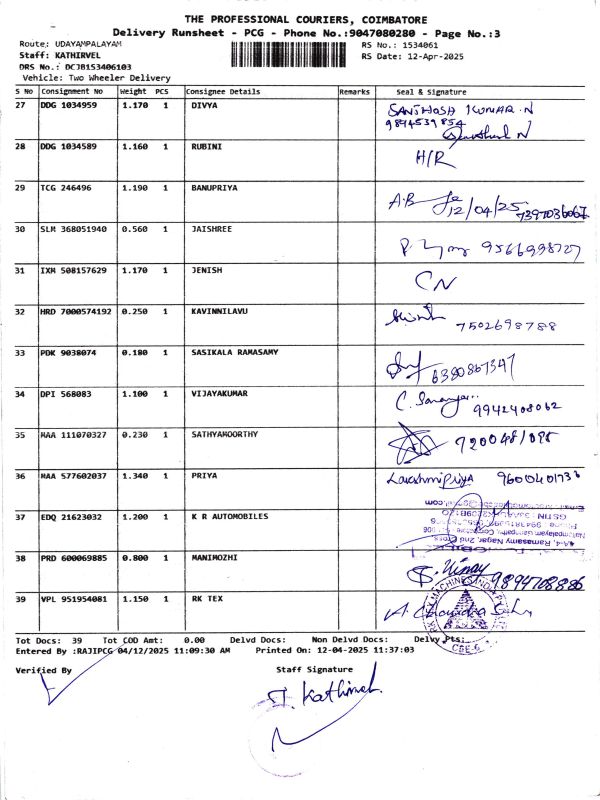 THE PROFESSIONAL COURIERS, COIMBATORE
Delivery Runsheet - PCG - Phone No.:9047080280 - Page No.:3
Route: UDAYAMPALAYAM
Staff: KATHIRVEL
DRS No.: DCJB1534061O3
Vehicle: Two Wheeler Delivery
RS No.: 1534061
RS Date: 12-Apr-2025
S No Consignment No Weight PCS Consignee Details Remarks Seal & Signature
27 DDG 1034959 1.170 1 DIVYA SANTHOSH KUMAR.N
9894539854
28 DDG 1034589 1.160 1 RUBINI H/R
29 TCG 246496 1.190 1 BANUPRIYA A.B
12/04/25 7397036067
30 SLM 368051940 0.560 1 JAISHREE 9566998727
31 IXM 508157629 1.170 1 JENISH CN
32 HRD 7000574192 0.250 1 KAVINNILAVU
7502698788
33 PDK 9038074 0.180 1 SASIKALA RAMASAMY
6380867347
34 DPI 568083 1.100 1 VIJAYAKUMAR
9942408062
35 MAA 111070327 0.230 1 SATHYAMOORTHY
36 MAA 577602037 1.340 1 PRIYA Lakshmipriya 9600401736
37 EDQ 21623032 1.200 1 K R AUTOMOBILES
38 PRD 600069885 0.800 1 MANIMOZHI Vinay
9894708886
39 VPL 951954081 1.150 1 RK TEX
CBE-6
Tot Docs: 39 Tot COD Amt: 0.00 Delvd Docs: Non Delvd Docs: Delvy Pts:
Entered By :RAJIPCG 04/12/2025 11:09:30 AM Printed On: 12-04-2025 11:37:03
Verified By Staff Signature
T. Kathirvel